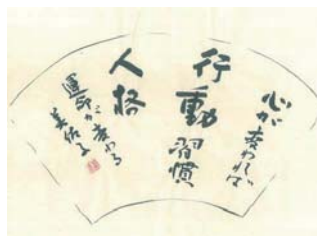 心が変われば
行動 習慣
人格
運命が変わる